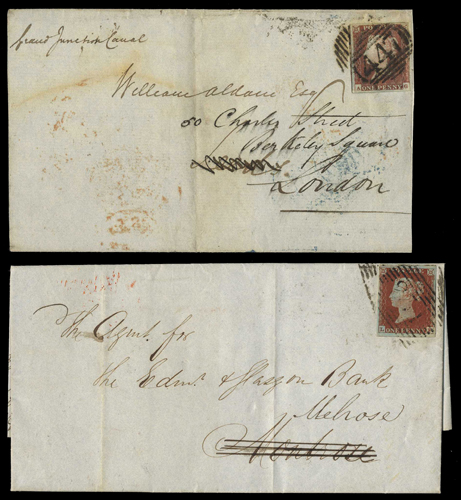 Grand Junction Canal
William Adams Esq
50 Charles Street
Berkeley Square
London
447
ONE PENNY
The Agent for
The Edinr & Glasgow Bank
Melrose
Montrose
ONE PENNY